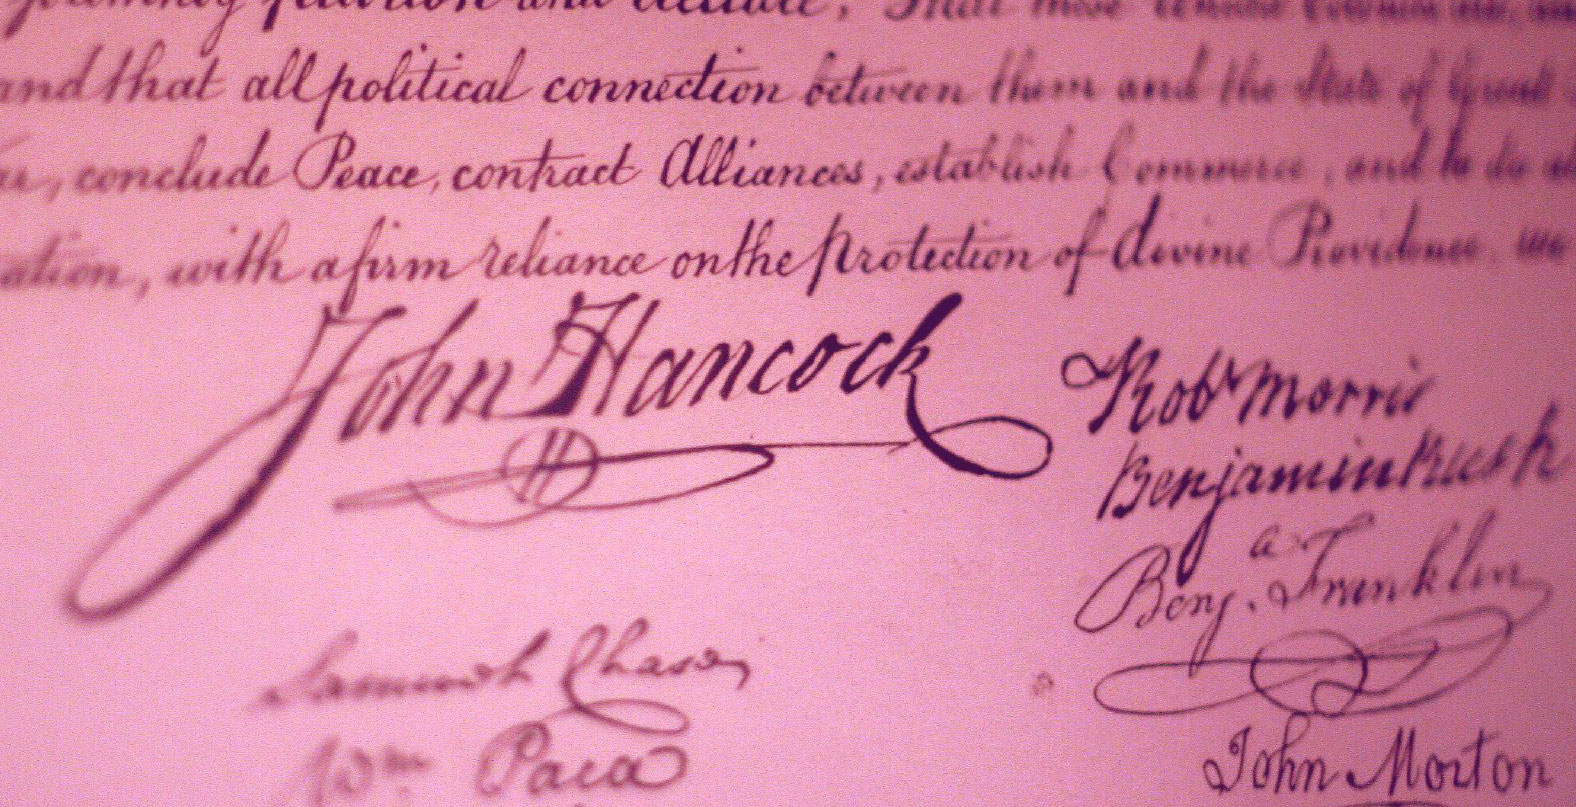 and that all political connection between them and the State of Great
conclude Peace, contract Alliances, establish Commerce, and to do
ation, with a firm reliance on the protection of divine Providence, we
John Hancock
Robt Morris
Benjamin Rush
Benj. a Franklin
Samuel Chase
Wm Paca
John Morton